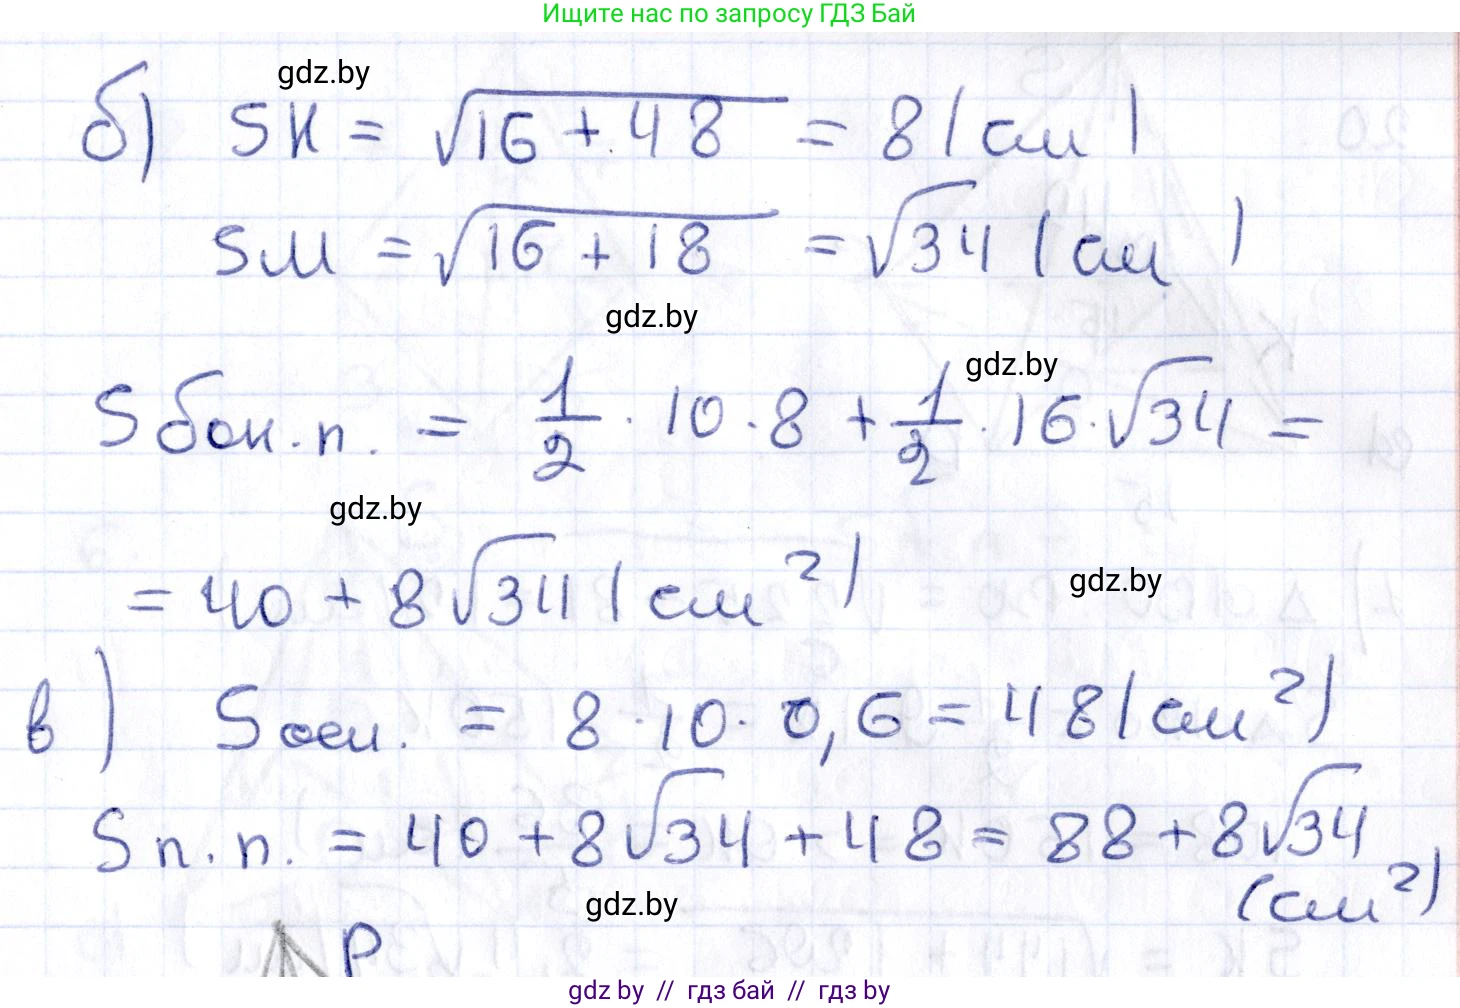 Ищите нас по запросу ГДЗ Бай
gdz.by
б) SK = √16 + 48 = 8 (см)
SM = √16 + 18 = √34 (см)
gdz.by
gdz.by
S бок. п. = 1/2 · 10 · 8 + 1/2 · 16 · √34 =
gdz.by
= 40 + 8√34 (см²)
gdz.by
в) S осн. = 8 · 10 · 0,6 = 48 (см²)
S п. п. = 40 + 8√34 + 48 = 88 + 8√34
(см²)
gdz.by
P
gdz by // гдз бай // гдз by